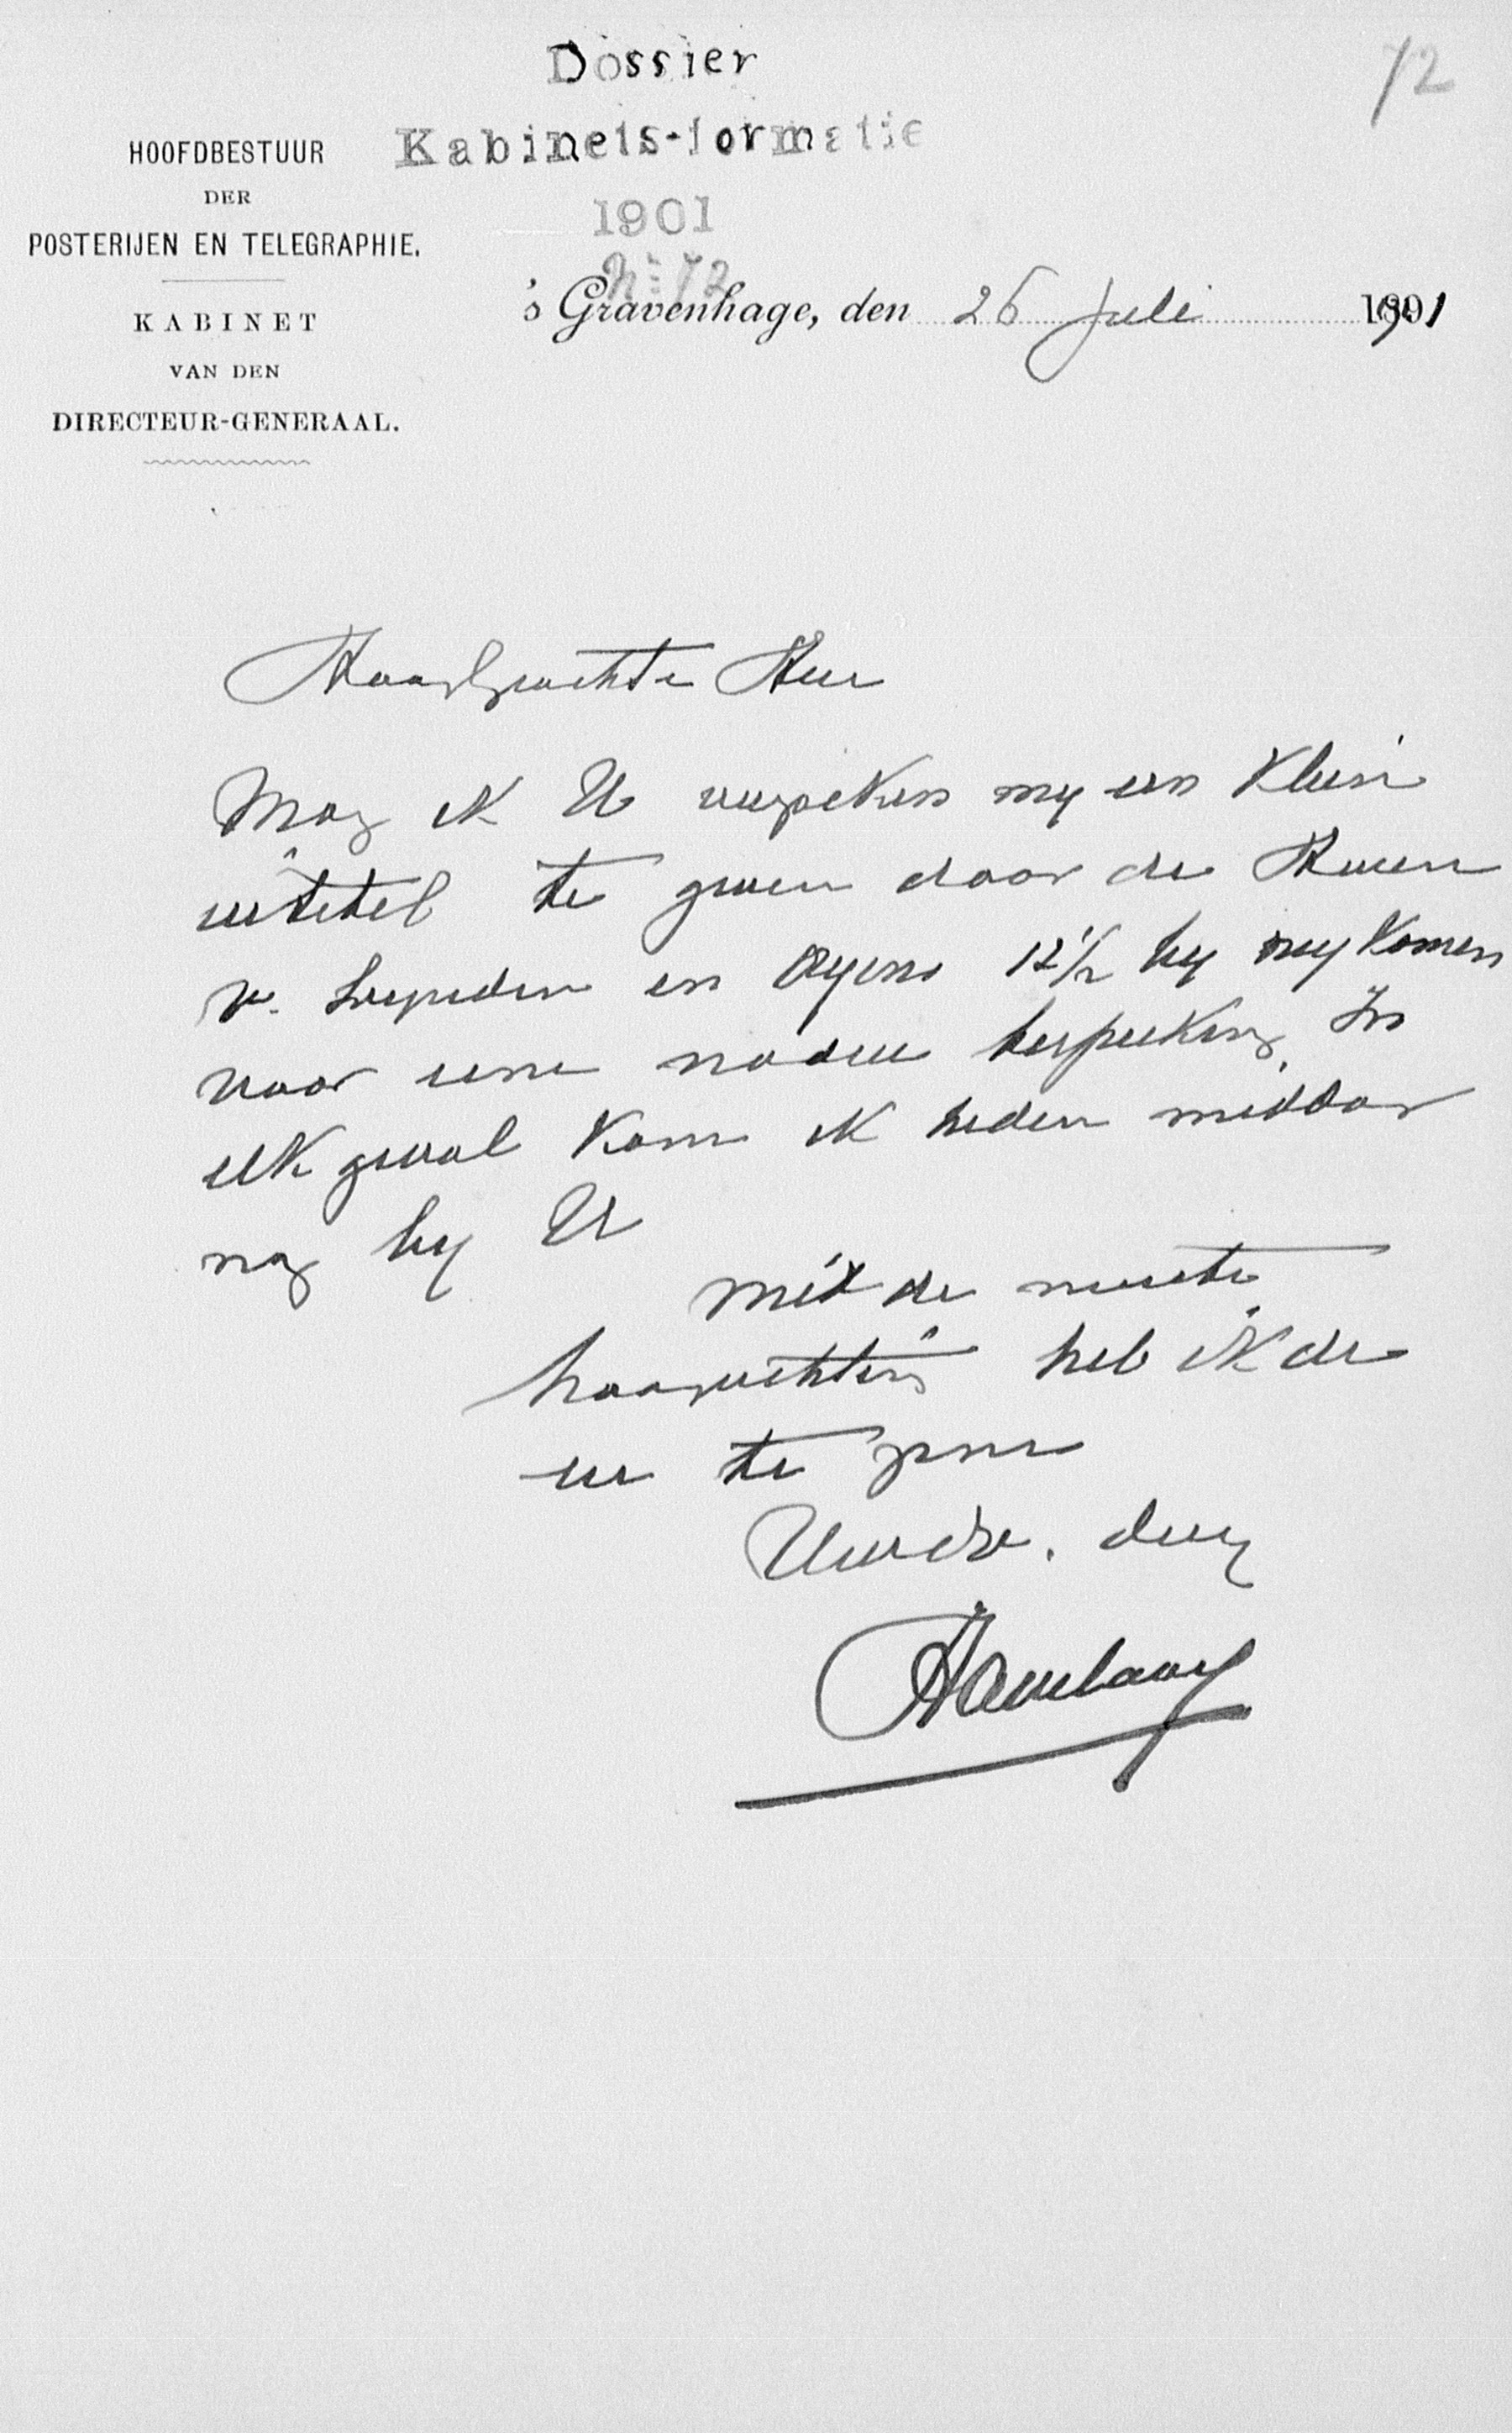 Dossier
Kabinets-formatie
1901
No 72
72
HOOFDBESTUUR
DER
POSTERIJEN EN TELEGRAPHIE.
KABINET
VAN DEN
DIRECTEUR-GENERAAL.
's Gravenhage, den 26 Juli 1901
Hooggeachte Heer
Mag ik U verzoeken my een klein
uitstel te geven daar de Heeren
v. en 12 1/2 by my komen
voor eene nadere bespreking. In
elk geval kom ik heden middag
nog by U
Met de meeste
hoogachting heb ik de
eer te zyn
Uwdw. dien